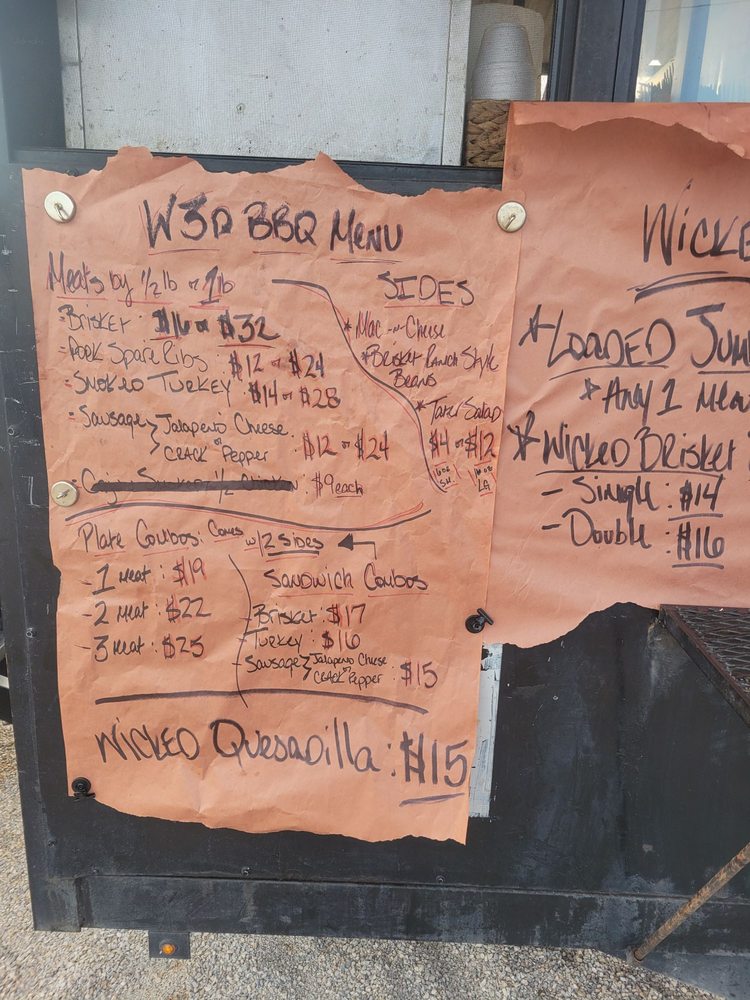 W3D BBQ MENU
Meats by 1/2 lb or 1 lb
- Brisket: $16 or $32
- Pork Spare Ribs: $12 or $24
- Smoked Turkey: $14 or $28
- Sausage } Jalapeno Cheese
or
CRACK Pepper : $12 or $24
$9 each
SIDES
* Mac-n-Cheese
* Brisket Ranch Style
Beans
* Tater Salad
$4 or $12
SM. LA
Plate Combos: Comes w/2 sides
- 1 Meat: $19
- 2 Meat: $22
- 3 Meat: $25
Sandwich Combos
- Brisket: $17
- Turkey: $16
- Sausage } Jalapeno Cheese
or
CRACK Pepper : $15
Wicked Quesadilla: $15
WICKE
* LOADED Jum
* Any 1 Mea
* Wicked Brisket
- Single: $14
- Double: $16